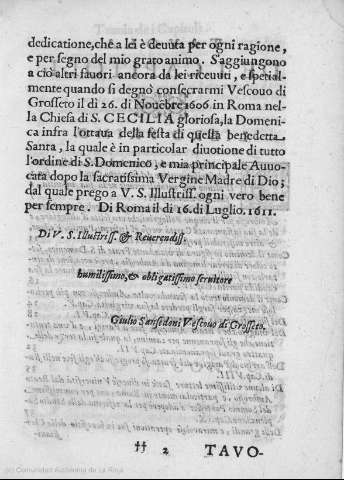 dedicatione, che a lei è deuuta per ogni ragione,
e per segno del mio grato animo. S'aggiungono
a ciò altri fauori ancora da lei riceuuti, e spetial-
mente quando si degnò consecrarmi Vescouo di
Grosseto il dì 26. di Nouẽbre 1606 in Roma nel-
la Chiesa di S. CECILIA gloriosa, la Domeni-
ca infra l'ottaua della festa di questa benedetta
Santa, la quale è in particolar diuotione di tutto
l'ordine di S. Domenico, e mia principale Auuo-
cata dopo la sacratissima Vergine Madre di Dio;
dal quale prego a V. S. Illustriss. ogni vero bene
per sempre. Di Roma il dì 16. di Luglio. 1611.
Di V. S. Illustriss. & Reuerendiss.
humilissimo, & obligatissimo seruitore
Giulio Sansedoni Vescouo di Grosseto.
†† 2 TAVO-
(c) Comunidad Autónoma de La Rioja